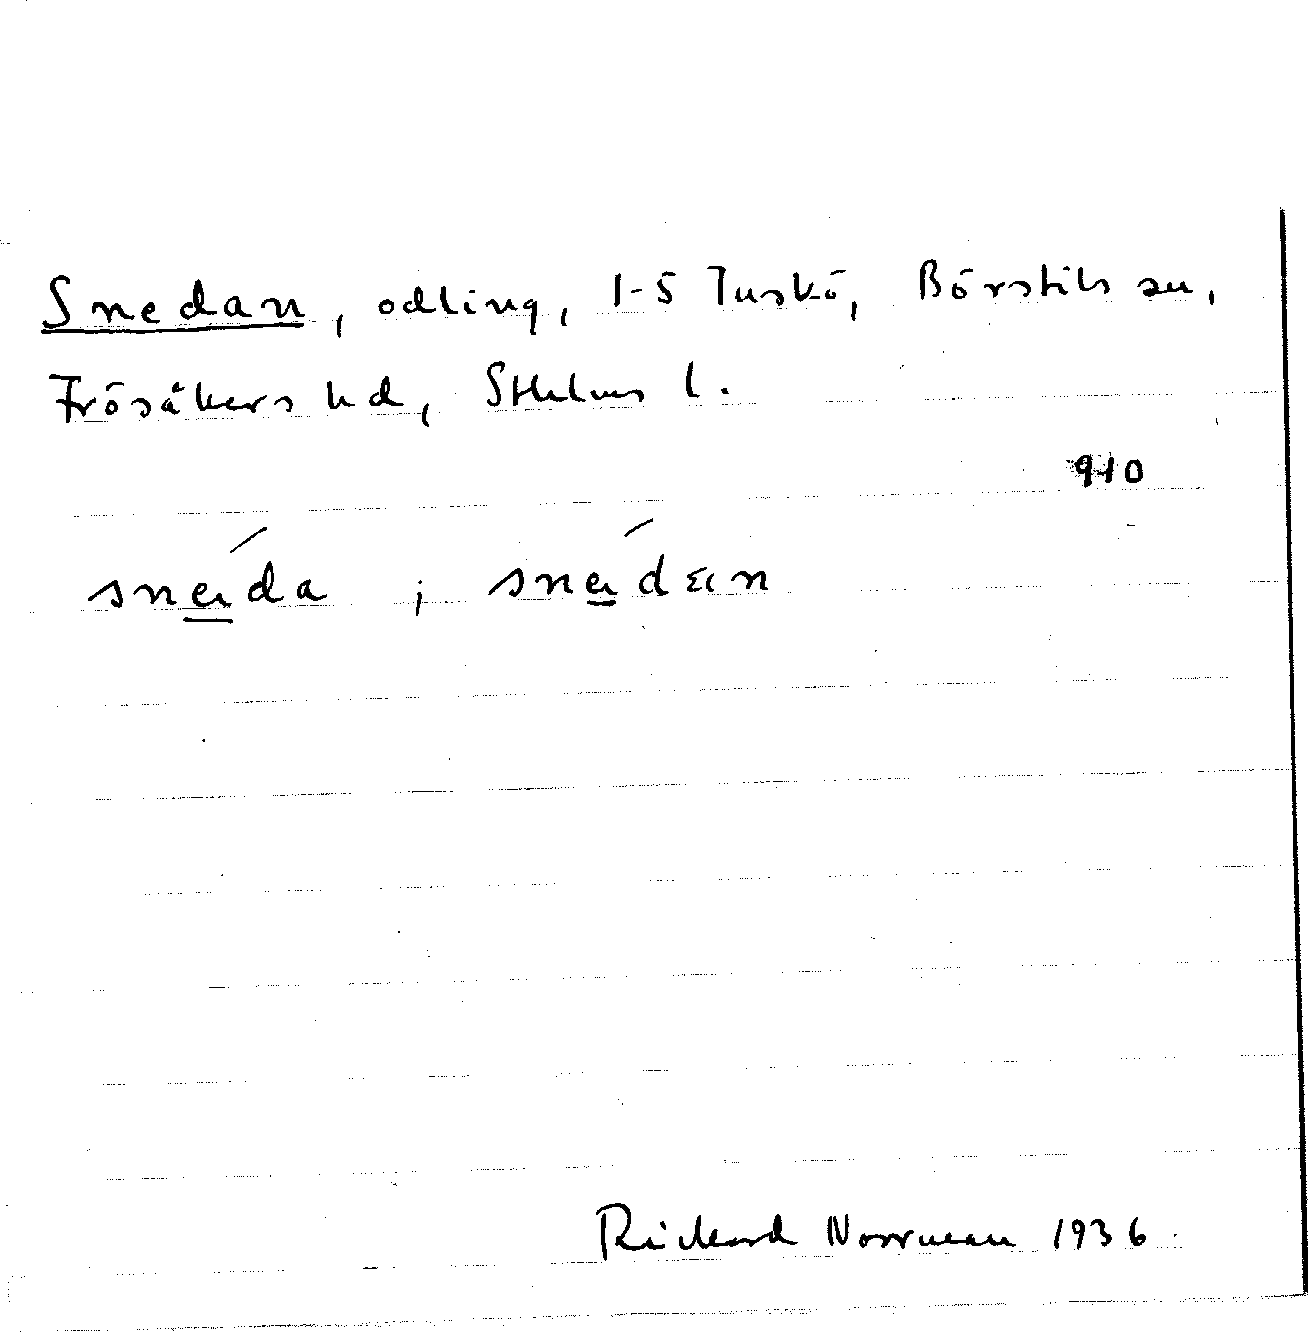 Snedan, odling, 1-5 Tuskö, Börstils sn,
Frösåkers hd, Sthlms l.
910
sneda ; snedan
Rickard Norrman 1936.